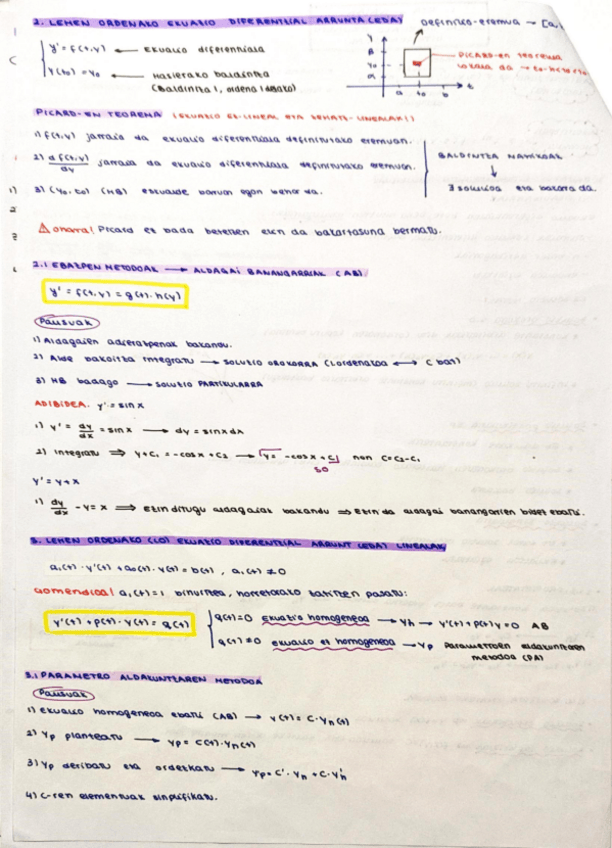 2. LEHEN ORDENAKO EKUAZIO DIFERENTZIAL ARRUNTA (EDA)
Definizio-eremua → [a,
y' = f(t,y) ← EKUAZIO diferentziala
y(t₀) = y₀ → Hasierako baldintza
(Baldintza 1, ordena 1 delako)
PICARD-en teorema
lokala da →
PICARD-EN TEOREMA (EKUAZIO EZ-LINEAL ETA SEMATE-LINEALAK!)
1) f(t,y) jarraia da ekuazio diferentziala definitutako eremuan.
2) df(t,y)/dy jarraia da ekuazio diferentziala definitutako eremuan.
BALDINTZA NAHIKOAK
3) (y₀,t₀) (HB) eskualde barruan egon behar da.
∃ soluzioa eta bakarra da.
⚠ oharra! Picard ez bada betetzen ezin da bakartasuna bermatu.
2.1 EBAZPEN METODOAK → ALDAGAI BANANGARRIAK (AB).
y' = f(t,y) = g(t)·h(y)
Pausuak
1) Aldagaien adierazpenak bakandu.
2) Alde bakoitza integratu → SOLUZIO OROKORRA (1.ordenakoa ↔ C bat)
3) HB badago → SOLUZIO PARTIKULARRA
ADIBIDEA. y' = sin x
1) y' = dy/dx = sin x → dy = sin x dx
2) Integratu ⇒ y + C₁ = -cos x + C₂ → y = -cos x + C non C = C₂ - C₁
SO
y' = y + x
1) dy/dx - y = x ⇒ Ezin ditugu aldagaiak bakandu ⇒ Ezin da aldagai banangarrien bidez ebatzi.
3. LEHEN ORDENAKO (LO) EKUAZIO DIFERENTZIAL ARRUNT (EDA) LINEALAK
a₁(t)·y'(t) + a₀(t)·y(t) = b(t), a₁(t) ≠ 0
Gomendioa! a₁(t) = 1 bihurtzea, horretarako zatitzen pasatu:
y'(t) + p(t)·y(t) = q(t)
q(t) = 0 ekuazio homogeneoa → yh → y'(t) + p(t)y = 0 AB
q(t) ≠ 0 ekuazio ez homogeneoa → yp Parametroen aldakuntzaren
metodoa (PA)
3.1 PARAMETRO ALDAKUNTZAREN METODOA
Pausuak
1) Ekuazio homogeneoa ebatzi (AB) → y(t) = C·yh(t)
2) yp planteatu → yp = C(t)·yh(t)
3) yp deribatu eta ordezkatu → yp = C'·yh + C·y'h
4) C-ren elementuak sinplifikatu.